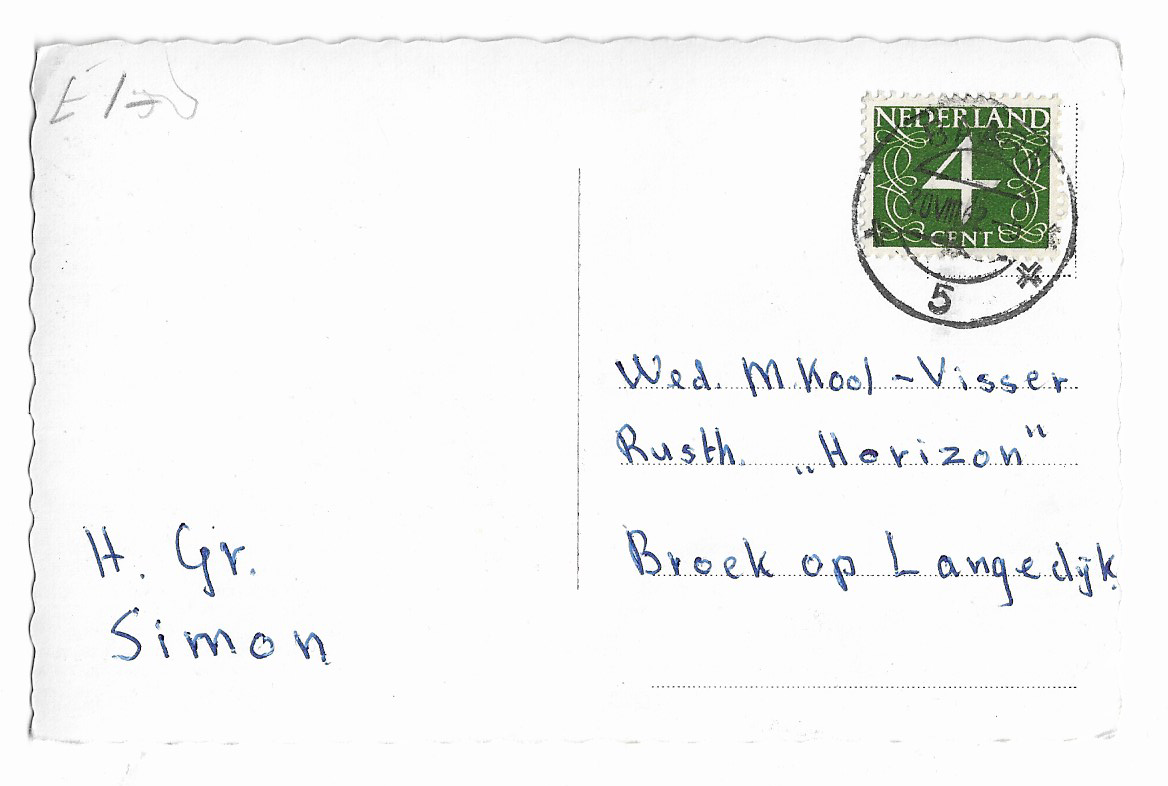 NEDERLAND
4
CENT
5
Wed. M. Kool - Visser
Rusth. „Horizon"
Broek op Langedijk
H. Gr.
Simon